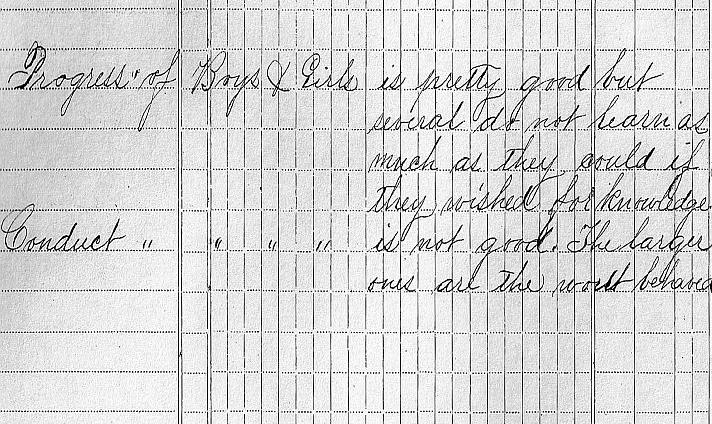 Progress of Boys & Girls is pretty good but
several do not learn as
much as they could if
they wished for knowledge
Conduct " " " " is not good. The larger
ones are the worst behaved